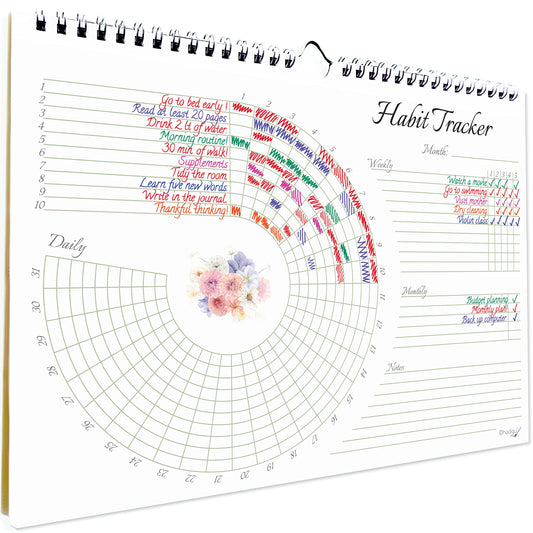 Habit Tracker
Month:
1 2 3 4 5 6 7 8 9 10 11 12 13 14 15 16 17 18 19 20 21 22 23 24 25 26 27 28 29 30 31
1
2 Go to bed early !
3 Read at least 20 pages
4 Drink 2 lt of water
5 Morning routine!
6 30 min. of walk!
7 Supplements
8 Tidy the room
9 Learn five new words
10 Write in the journal
Thankful thinking!
Daily
Weekly
1 2 3 4 5
Watch a movie
Go to swimming
Visit mother
Dry cleaning
Violin class
Monthly
Budget planning
Monthly plan
Back up computer
Notes